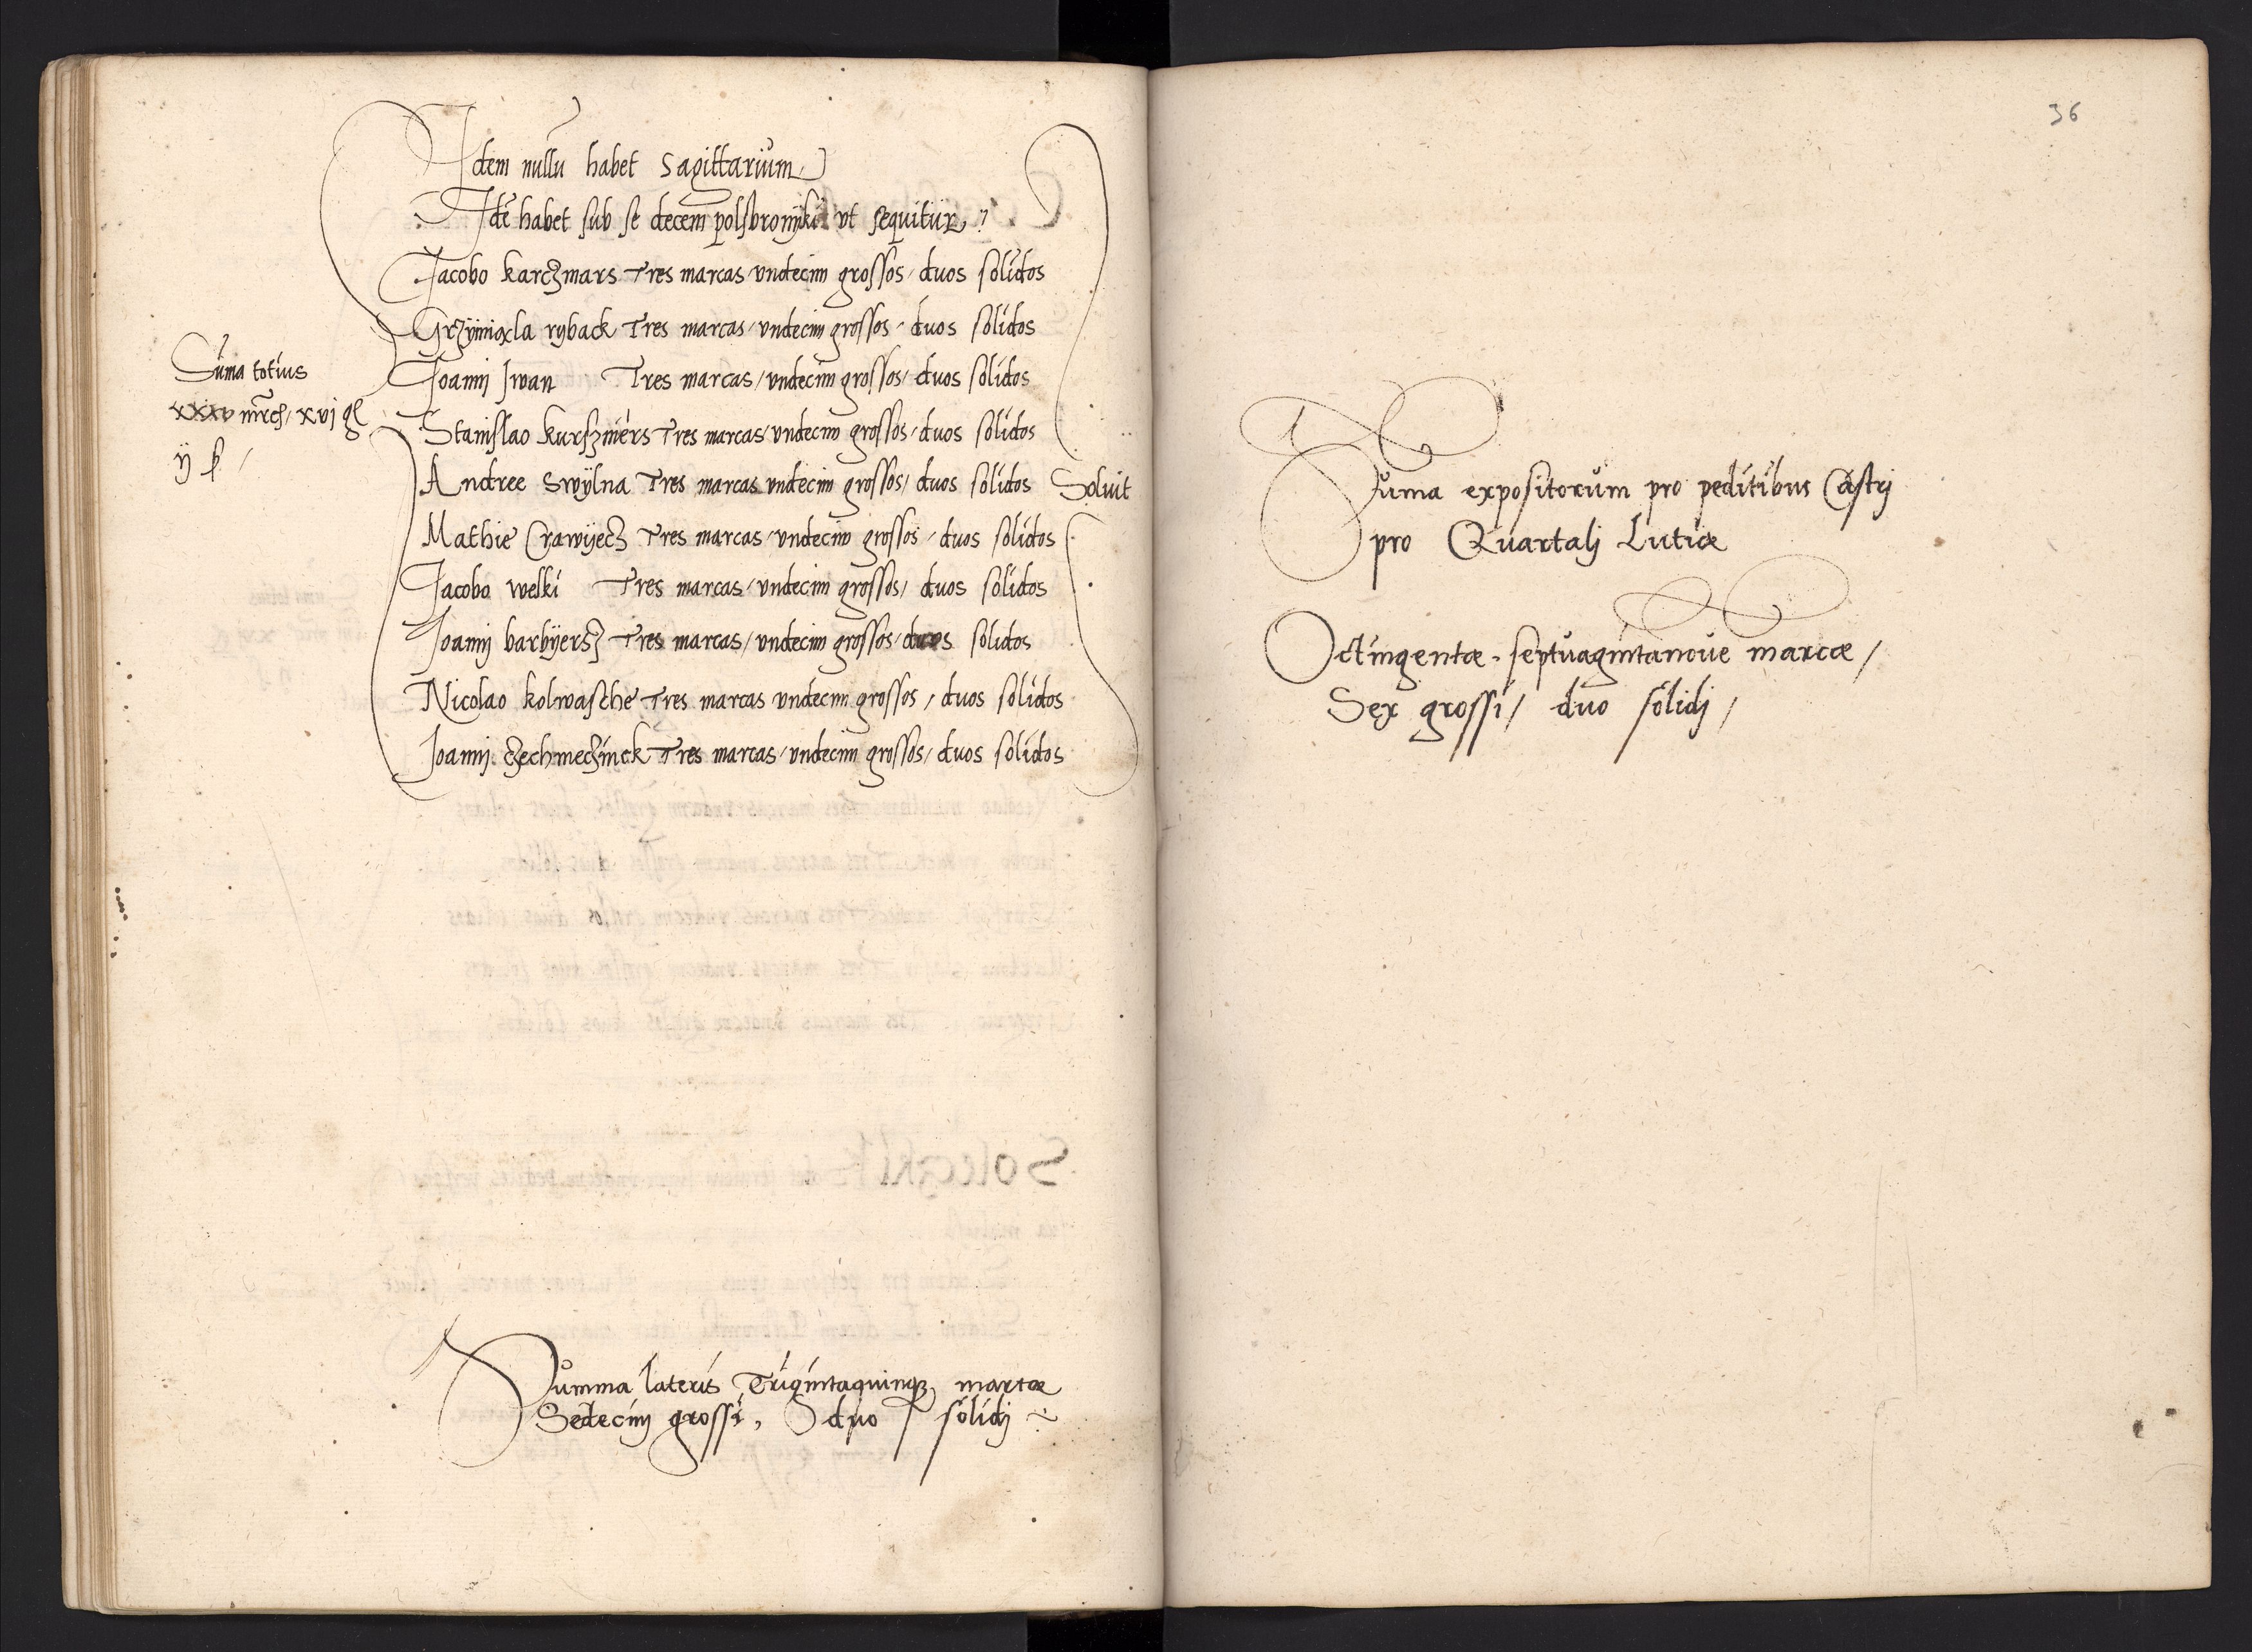 Idem nullū habet sagittarium
Idē habet sub se decem polsbronÿki vt sequitur
Jacobo karczmars Tres marcas vndecim grossos / duos solidos
Grzÿmiola ryback Tres marcas / vndecim grossos / duos solidos
Joanni Jwan Tres marcas / vndecim grossos / duos solidos
Suma totius
xxxv mrcs / xvj gs
ÿ s /
Stanislao kurszners Tres marcas / vndecim grossos / duos solidos
Andree swÿlna Tres marcas vndecim grossos / duos solidos Soluit
Mathie Crawÿecz Tres marcas / vndecim grossos / duos solidos
Jacobo welki Tres marcas / vndecim grossos / duos solidos
Joanni barbÿersz Tres marcas / vndecim grossos / duos solidos
Nicolao kolwasche Tres marcas vndecim grossos / duos solidos
Joanni czechmeczinck Tres marcas / vndecim grossos / duos solidos
Summa lateris Trigintaquinqz marcæ
Sedecim grossi, duo solidj
36
Suma expositorum pro peditibus Castrj
pro Quartalj Luciæ
Octingentæ septuagintanoue marcæ /
Sex grossi / duo solidj /